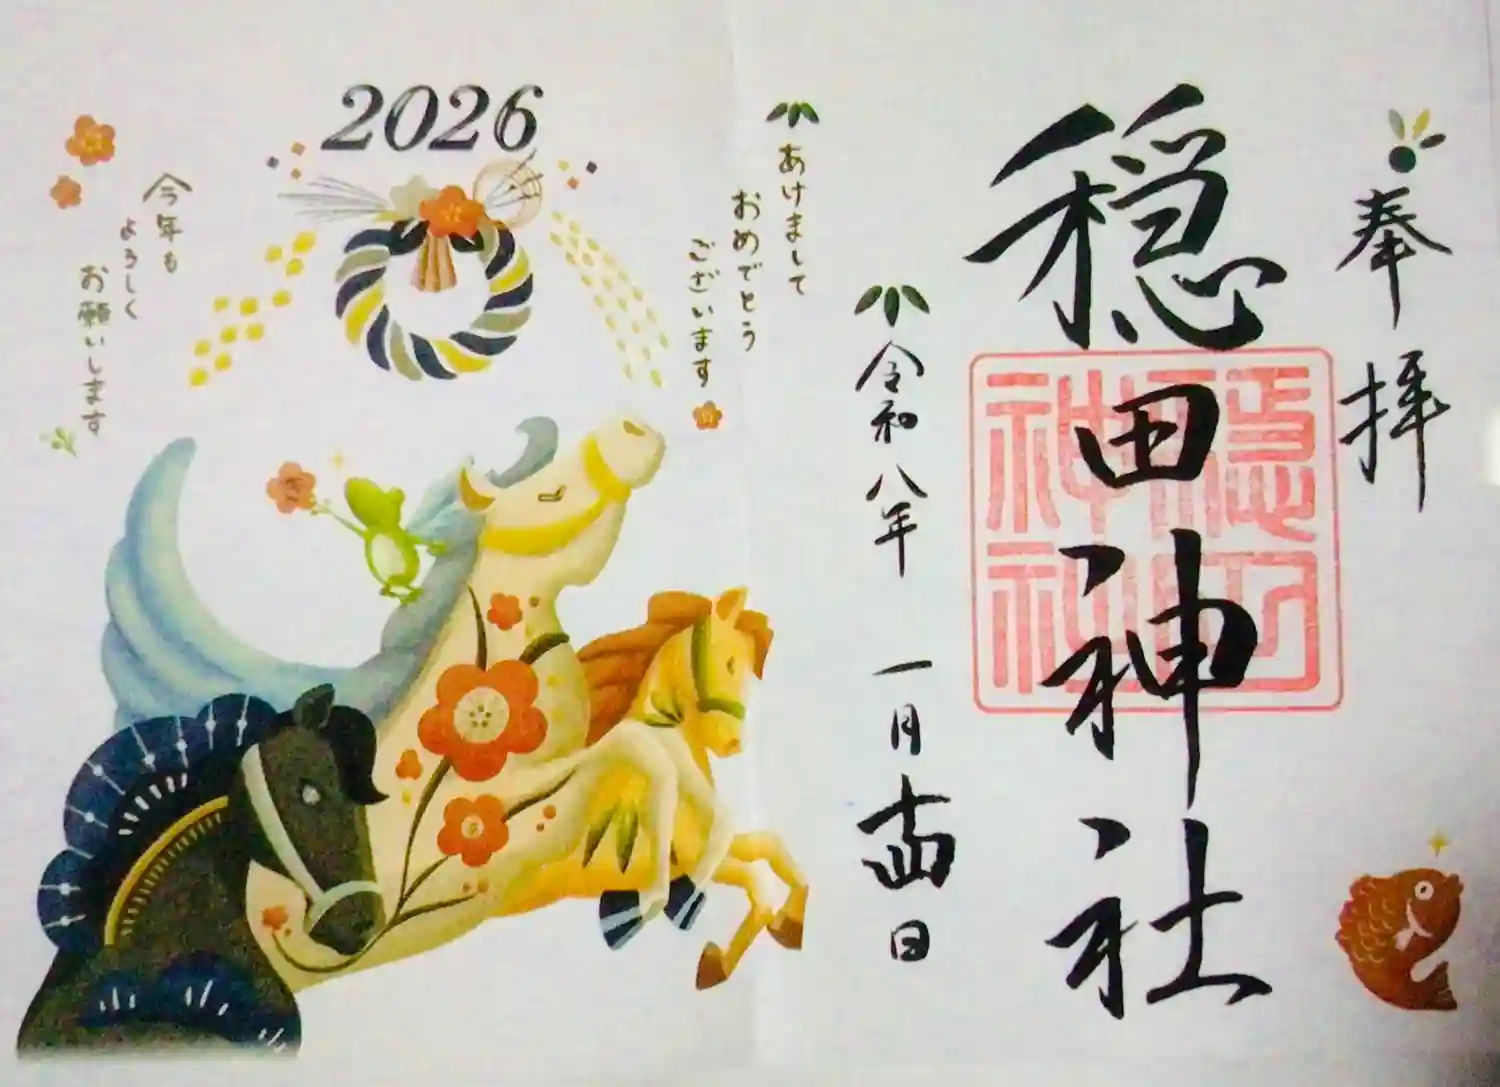 奉拝
穏田神社
穏田
神社
令和八年 一月十四日
あけまして
おめでとう
ございます
2026
今年も
よろしく
お願いします